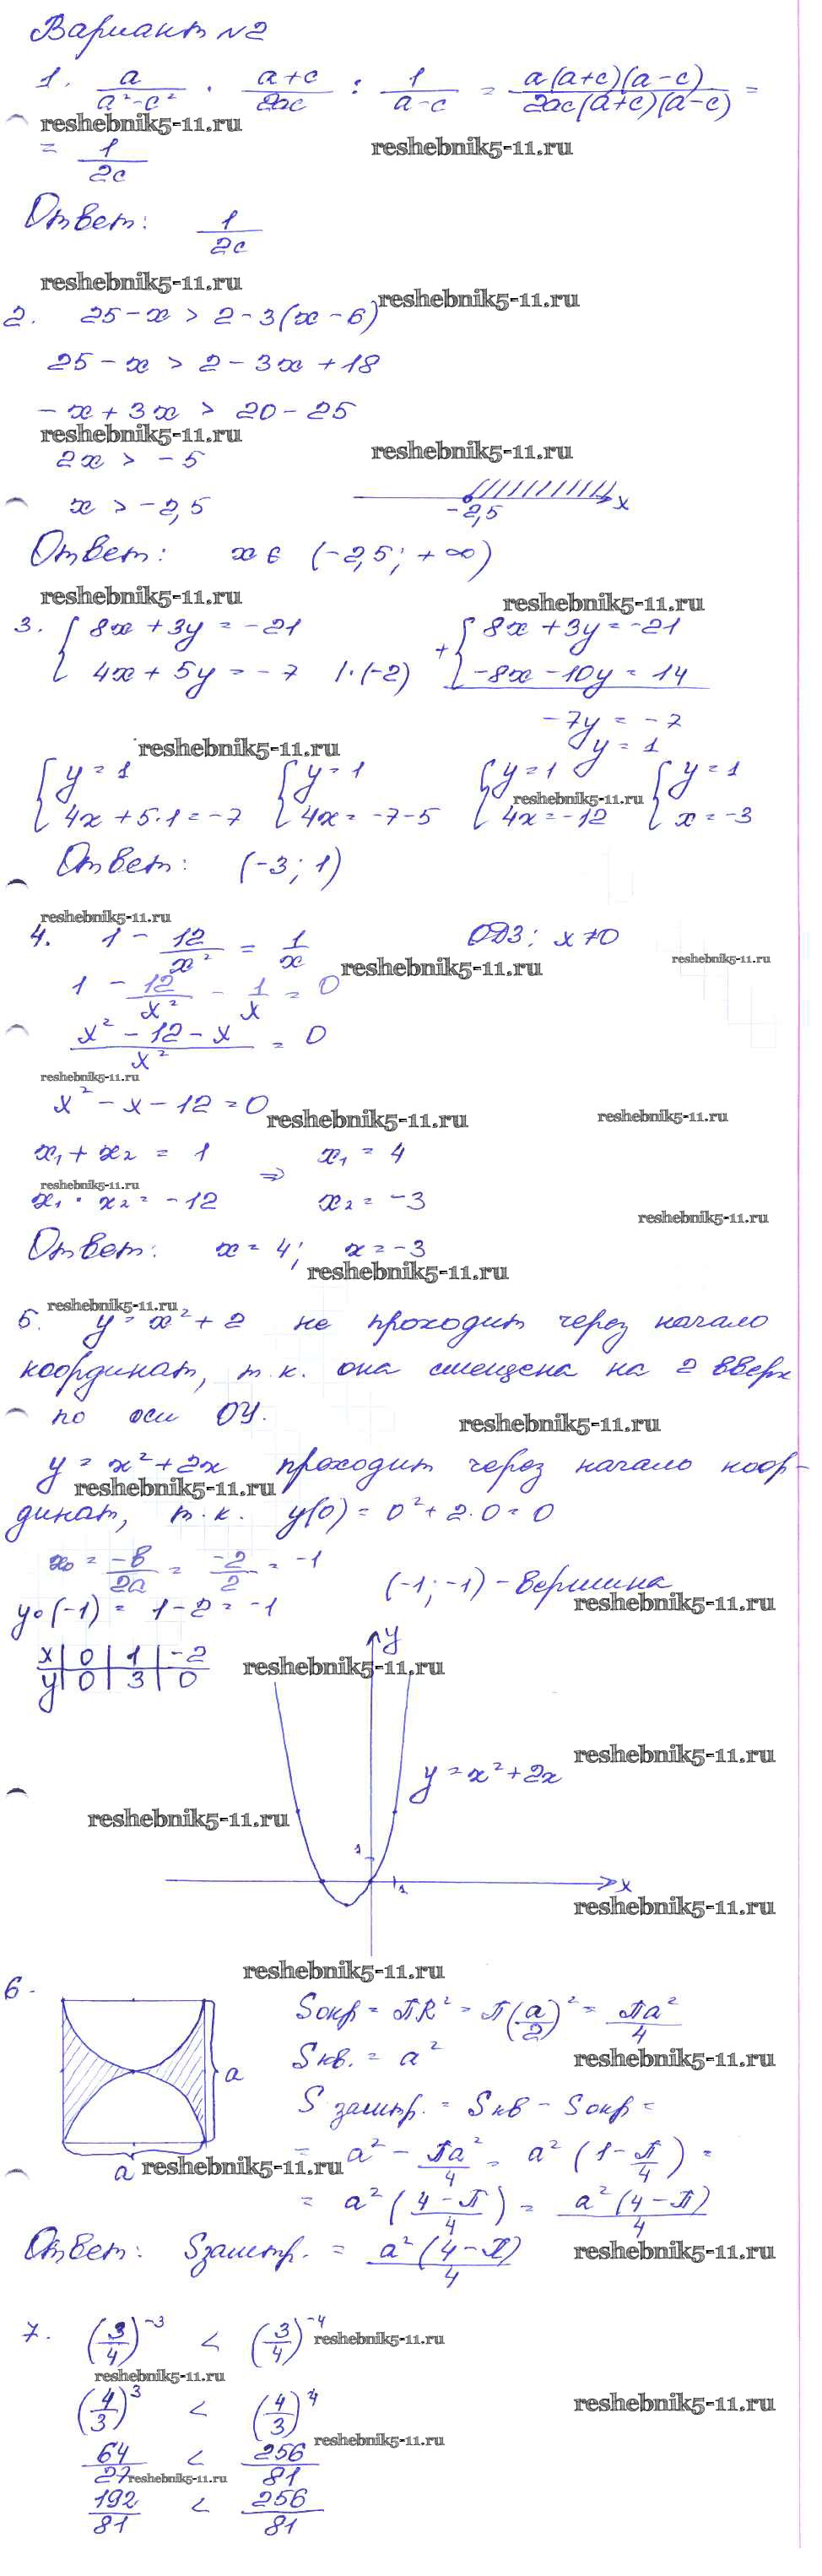 Вариант №2
1. a/(a²-c²) · (a+c)/2ac : 1/(a-c) = a(a+c)(a-c)/2ac(a+c)(a-c) =
reshebnik5-11.ru
= 1/2c reshebnik5-11.ru
Ответ: 1/2c
reshebnik5-11.ru reshebnik5-11.ru
2. 25-x > 2-3(x-6)
25-x > 2-3x+18
-x+3x > 20-25
reshebnik5-11.ru reshebnik5-11.ru
2x > -5
x > -2,5 -2,5 x
Ответ: x ∈ (-2,5; +∞)
reshebnik5-11.ru reshebnik5-11.ru
3. { 8x+3y=-21 + { 8x+3y=-21
4x+5y=-7 |·(-2) -8x-10y=14
-7y=-7
reshebnik5-11.ru y=1
{ y=1 { y=1 { y=1 { y=1
reshebnik5-11.ru
4x+5·1=-7 4x=-7-5 4x=-12 x=-3
Ответ: (-3; 1)
reshebnik5-11.ru
4. 1 - 12/x² = 1/x ОДЗ: x≠0
reshebnik5-11.ru reshebnik5-11.ru
1 - 12/x² - 1/x = 0
(x²-12-x)/x² = 0
reshebnik5-11.ru
x²-x-12=0
reshebnik5-11.ru reshebnik5-11.ru
x₁+x₂=1 ⇒ x₁=4
reshebnik5-11.ru
x₁·x₂=-12 x₂=-3
reshebnik5-11.ru
Ответ: x=4; x=-3
reshebnik5-11.ru
reshebnik5-11.ru
5. y=x²+2 не проходит через начало
координат, т.к. она смещена на 2 вверх
по оси ОУ.
reshebnik5-11.ru
y=x²+2x проходит через начало коор-
reshebnik5-11.ru
динат, т.к. y(0)=0²+2·0=0
x₀ = -b/2a = -2/2 = -1 (-1;-1) - вершина
reshebnik5-11.ru
y₀(-1) = 1-2 = -1
y
x | 0 | 1 | -2
reshebnik5-11.ru
y | 0 | 3 | 0
reshebnik5-11.ru
y=x²+2x
reshebnik5-11.ru
1
1 x
reshebnik5-11.ru
reshebnik5-11.ru
6. Sокр = ПR² = П(a/2)² = Пa²/4
Sкв. = a² reshebnik5-11.ru
a
S заштр. = Sкв - Sокр =
a reshebnik5-11.ru
= a² - Пa²/4 = a²(1-П/4) =
= a²((4-П)/4) = a²(4-П)/4
Ответ: Sзаштр. = a²(4-П)/4 reshebnik5-11.ru
7. (3/4)⁻³ < (3/4)⁻⁴
reshebnik5-11.ru
reshebnik5-11.ru
(4/3)³ < (4/3)⁴ reshebnik5-11.ru
reshebnik5-11.ru
64/27 < 256/81
reshebnik5-11.ru
192/81 < 256/81